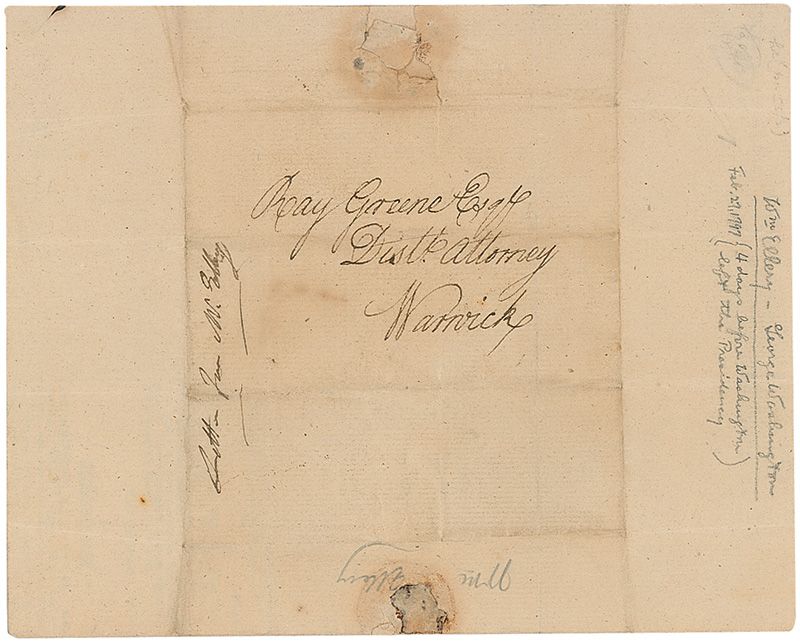 Ray Greene Esqr
Distt. Attorney
Warwick
Letter from Mr. Ellery
Wm Ellery – George Washington
Feb. 27, 1797 (4 days before Washington
left the Presidency)
Wm
Ellery